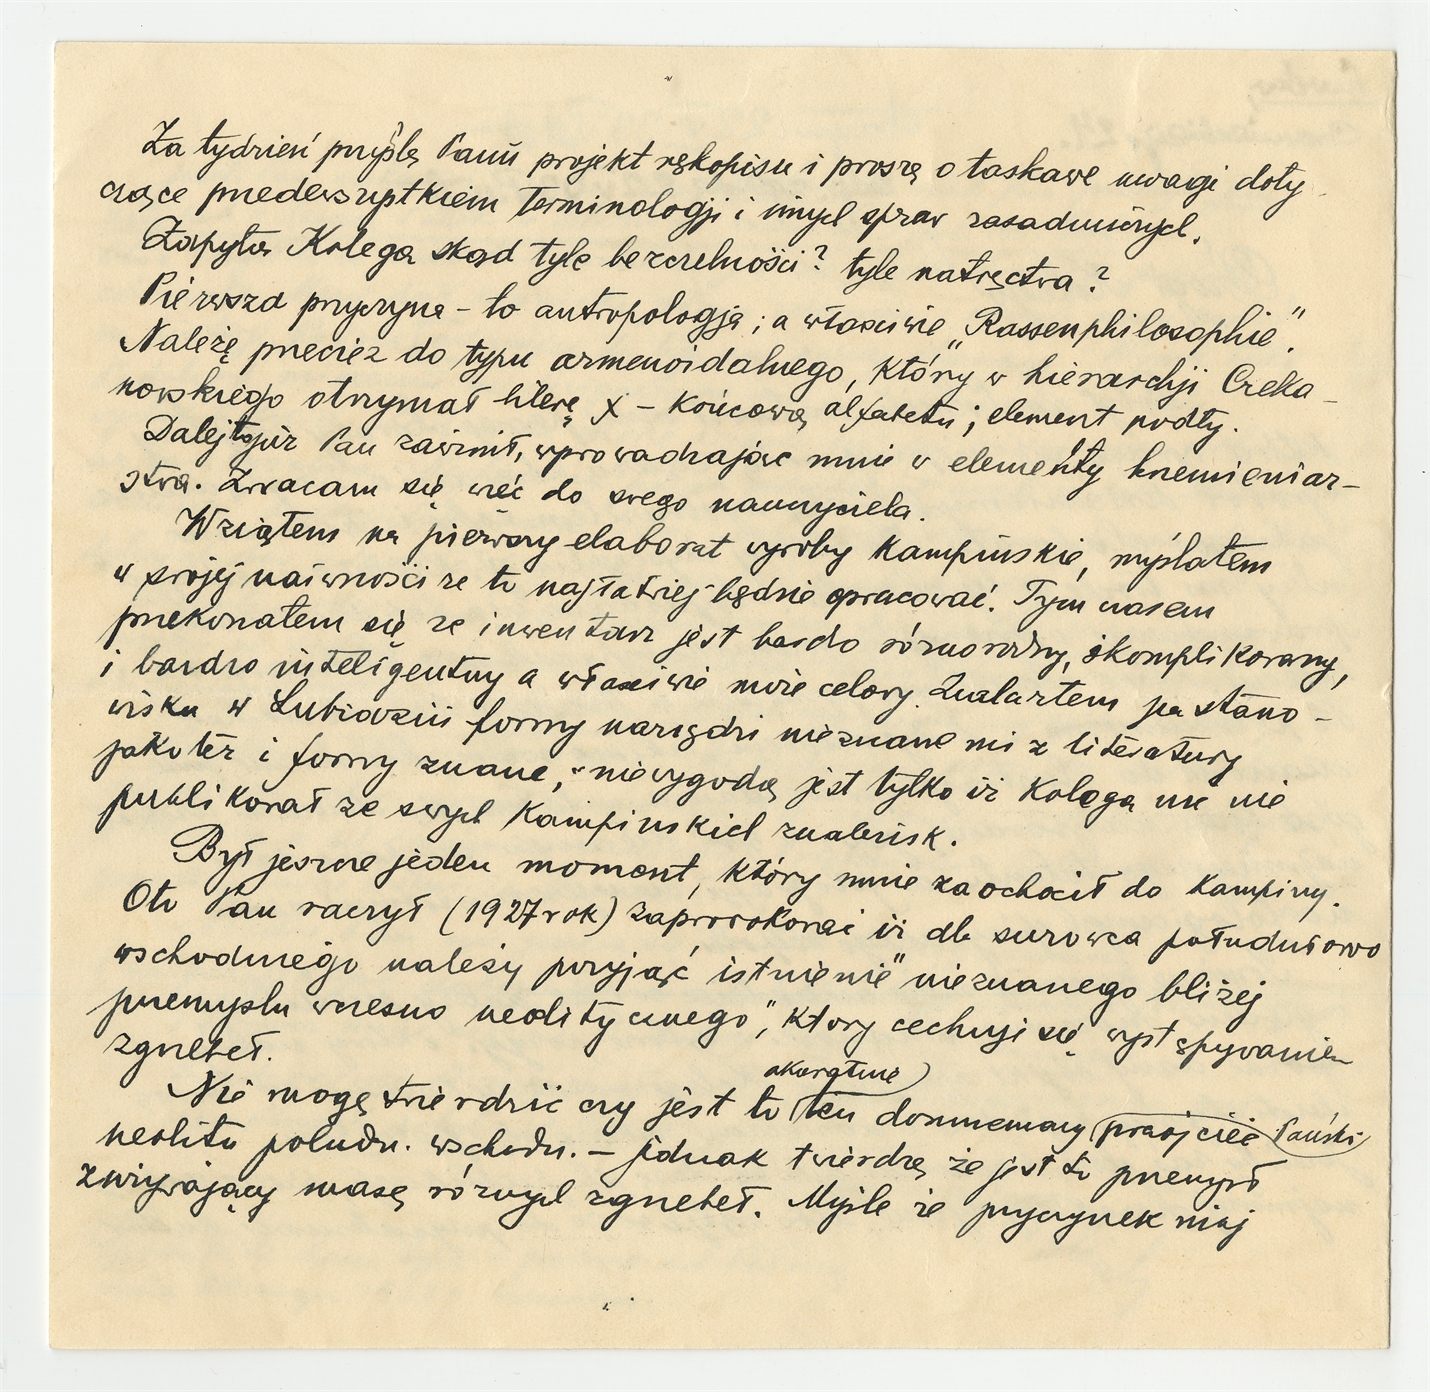 Za tydzień przyślę Panu projekt rękopisu i proszę o łaskawe uwagi doty
czące przedewszystkiem terminologji i innych spraw zasadniczych.
Zapyta Kolega skąd tyle bezczelności? tyle natręctwa?
Pierwsza przyczyna – to antropologja; a właściwie „Rassenphilosophie".
Należę przecież do typu armenoidalnego, który w hierarchji Czeka-
nowskiego otrzymał literę χ – końcową alfabetu; element podły.
Dalej to już Pan zawinił, wprowadzając mnie w elementy krzemieniar-
stwa. Zwracam się więc do swego nauczyciela.
Wziąłem na pierwszy elaborat wyroby kampinskie, myślałem
w swojej naiwności ze to najłatwiej będzie opracować. Tym czasem
przekonałem się ze inwentarz jest bardo różnorodny, skomplikowany,
i bardzo inteligentny a właściwie celowy. Znalazłem na stano-
wisku w formy narzędzi nieznane mi z literatury
jakoteż i formy znane, niewygodą jest tylko iż Kolega nic nie
publikował ze swych Kampinskich znalezisk.
Był jeszcze jeden moment, który mnie zaochocił do Kampiny.
Oto Pan raczył (1927 rok) zaprorokować iż dla surowca południowo
wschodniego należy przyjąć istnienie "nieznanego bliżej
przemysłu wczesno neolitycznego", ktory cechuje się występywaniem
zgrzebeł.
akuratnie
Nie mogę twierdzić czy jest to ten domniemany praojciec Pański
neolitu połudn. wschodn. – jednak twierdzę że jest to przemysł
zwiywający masę róznych zgrzebeł. Myśle że przyczynek niej